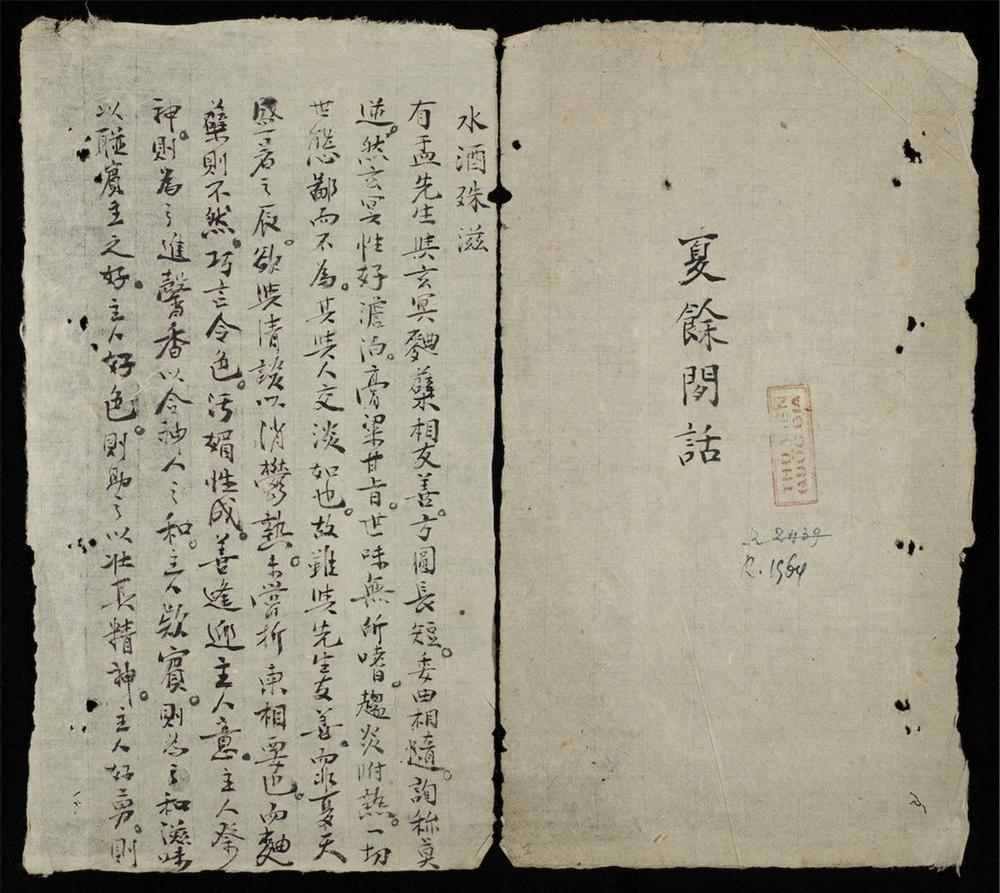 夏餘閒話
THƯ VIỆN
QUỐC GIA
R 2439
R.1964
水酒殊滋
有盂先生與玄冥麹櫱相友善。方圓長短。委曲相隨。詢称莫
逆。然玄冥性好澹泊。膏粱甘旨。世味無所嗜。趨炎附熱。一切
世態鄙而不為。其與人交淡如也。故雖與先生友善。而非夏天
暑之辰。欲與清談以消鬱熱。未嘗折柬相要也。而麯
櫱則不然。巧言令色。污媚性成。善逢迎主人意。主人祭
神。則為之進馨香以合神人之和。主人欵賓。則為之和滋味
以聯賓主之好。主人好色。則助之以壯其精神。主人好勇。則